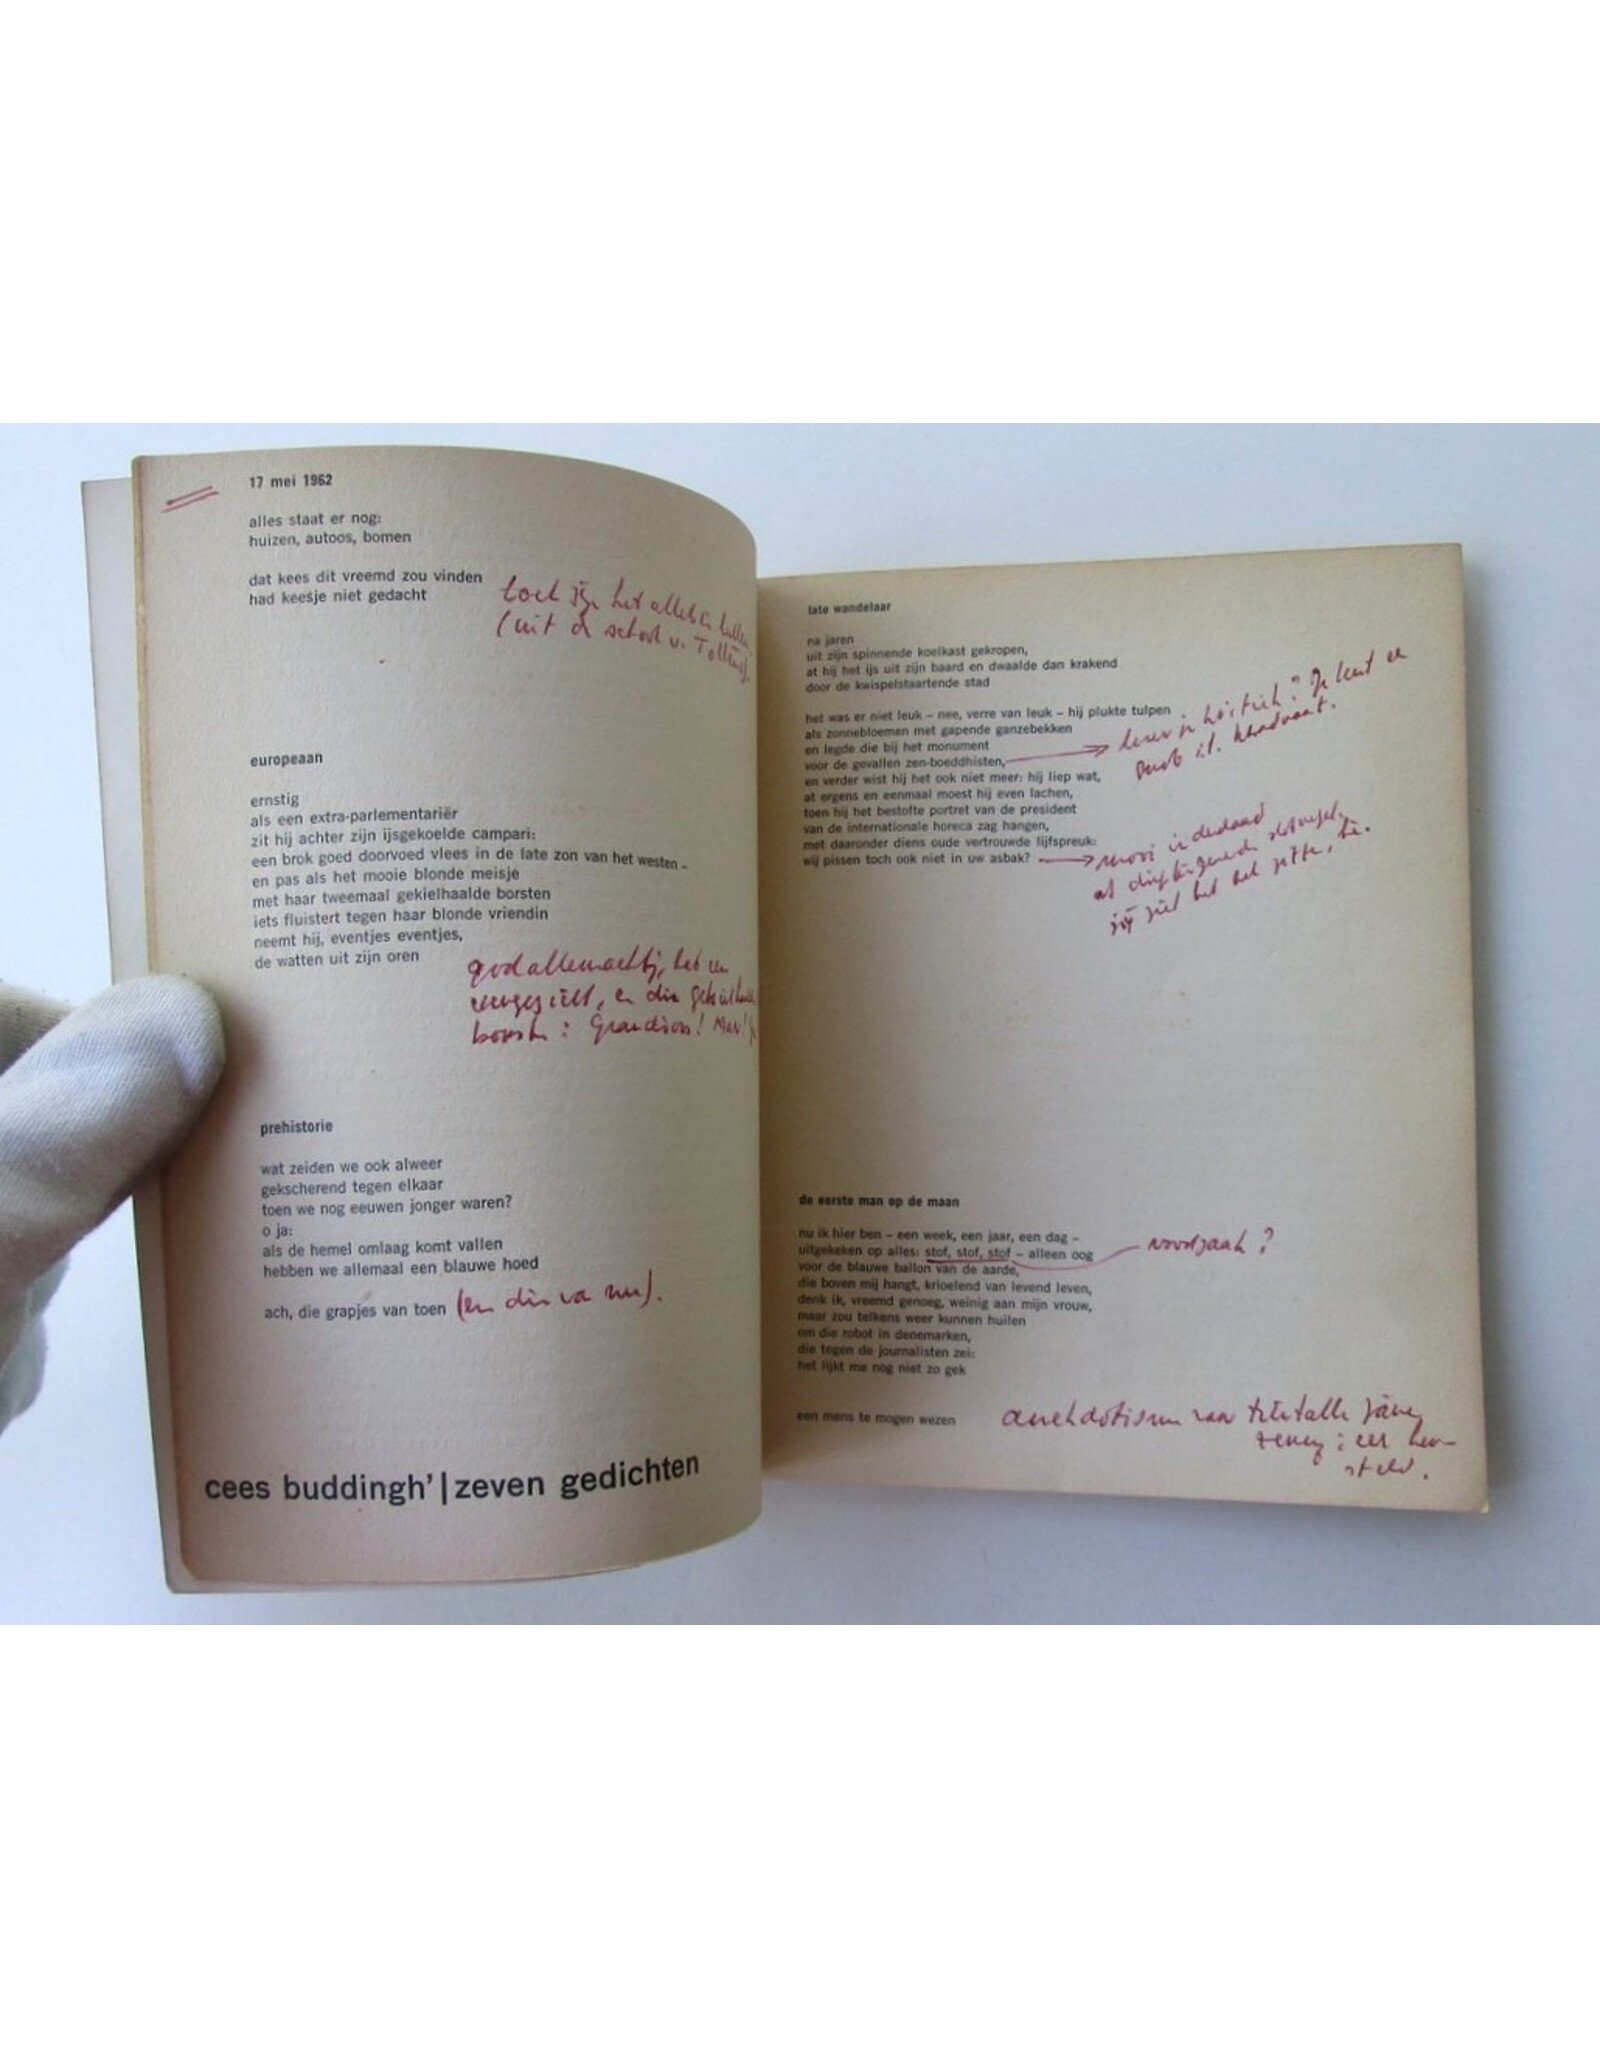 17 mei 1962
alles staat er nog:
huizen, autoos, bomen
dat kees dit vreemd zou vinden
had keesje niet gedacht
(uit de school v. Tollens).
europeaan
ernstig
als een extra-parlementariër
zit hij achter zijn ijsgekoelde campari:
een brok goed doorvoed vlees in de late zon van het westen –
en pas als het mooie blonde meisje
met haar tweemaal gekielhaalde borsten
iets fluistert tegen haar blonde vriendin
neemt hij, eventjes eventjes,
de watten uit zijn oren
godallemachtig, heb een
en die gekielhaalde
borsten: Grandioos! Man!
prehistorie
wat zeiden we ook alweer
gekscherend tegen elkaar
toen we nog eeuwen jonger waren?
o ja:
als de hemel omlaag komt vallen
hebben we allemaal een blauwe hoed
ach, die grapjes van toen (en die va nu).
cees buddingh'|zeven gedichten
late wandelaar
na jaren
uit zijn spinnende koelkast gekropen,
at hij het ijs uit zijn baard en dwaalde dan krakend
door de kwispelstaartende stad
het was er niet leuk – nee, verre van leuk – hij plukte tulpen
als zonnebloemen met gapende ganzebekken
en legde die bij het monument
voor de gevallen zen-boeddhisten,
en verder wist hij het ook niet meer: hij liep wat,
at ergens en eenmaal moest hij even lachen,
toen hij het bestofte portret van de president
van de internationale horeca zag hangen,
met daaronder diens oude vertrouwde lijfspreuk:
wij pissen toch ook niet in uw asbak?
mooi inderdaad
jij ziet het
de eerste man op de maan
nu ik hier ben – een week, een jaar, een dag –
uitgekeken op alles: stof, stof, stof – alleen oog
voor de blauwe ballon van de aarde,
die boven mij hangt, krioelend van levend leven,
denk ik, vreemd genoeg, weinig aan mijn vrouw,
maar zou telkens weer kunnen huilen
om die robot in denemarken,
die tegen de journalisten zei:
het lijkt me nog niet zo gek
noodzaak?
een mens te mogen wezen
anekdotisme van